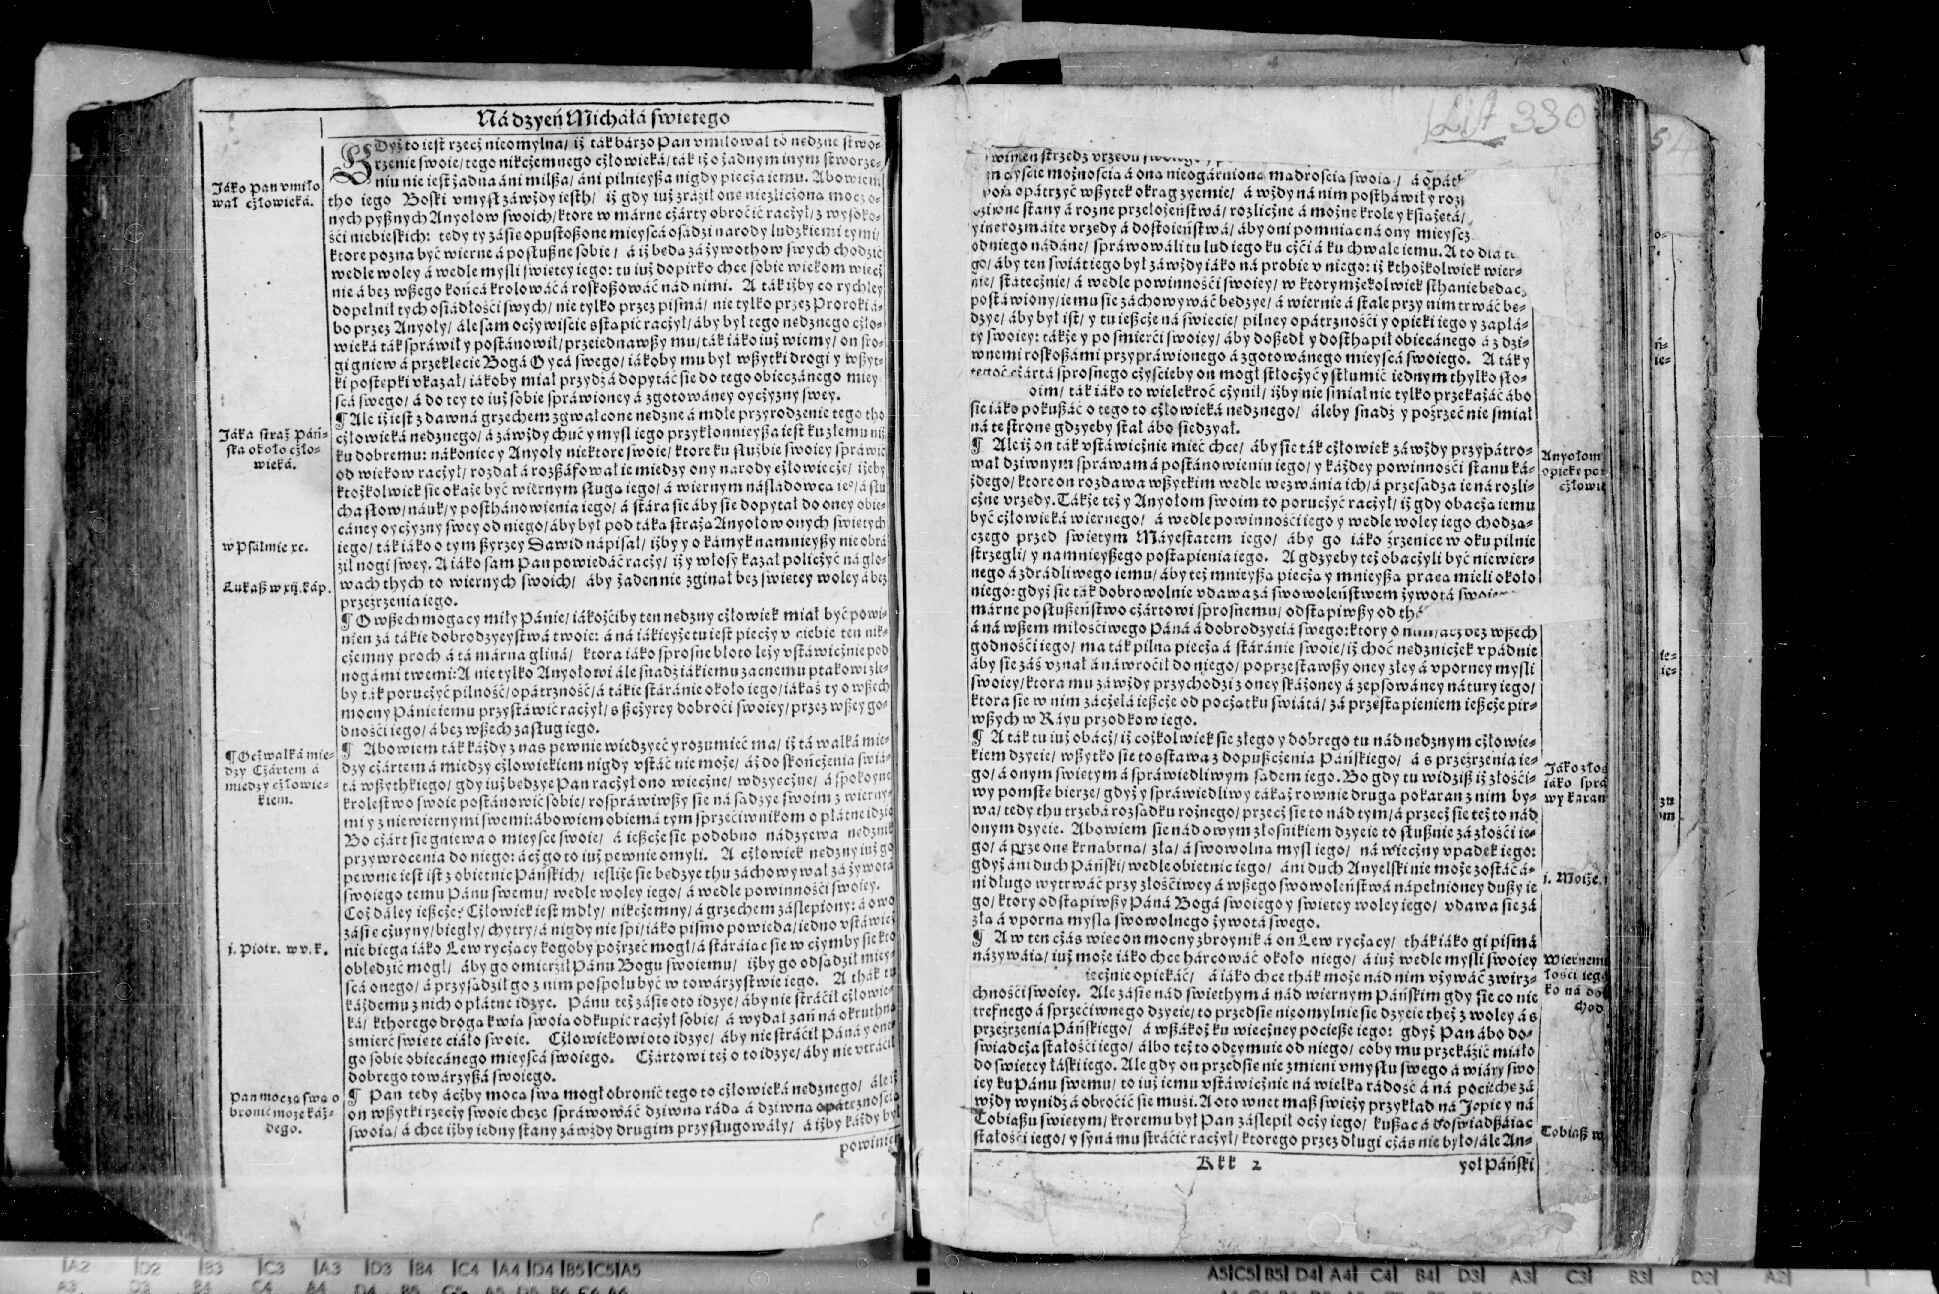 Ná dzyeń Michałá swietego
Jáko Pan vmiło
wał człowieká.
GDyż to iest rzecż nieomylna/ iż ták bárzo Pan vmiłował to nędzne stwo-
rzenie swoie/ tego nikcżemnego cżłowieká/ ták iż o żadnym inym stworze-
niu nie iest żadna áni milßa/ áni pilnieyßa nigdy piecża iemu. Abowiem
tho iego Boski vmysł záwżdy iesth/ iż gdy iuż zráził one niezlicżona moc o-
nych pyßnych Anyołow swoich/ ktore w márne cżárty obroćić racżył/ z wysoko-
śći niebieskich: tedy ty zásie opustoßone mieyscá osádzi narody ludzkiemi tymi/
ktore pozna być wierne á posłußne sobie/ á iż bedą zá żywothow swych chodzić
wedle woley á wedle mysli swietey iego: tu iuż dopirko chce sobie wiekom wiecż
nie á bez wßego końcá krolowáć á roskoßowáć nád nimi. A ták iżby co rychley
dopełnił tych osiádłośći swych/ nie tylko przez pismá/ nie tylko przez Proroki á-
bo przez Anyoły/ ále sam ocżywiście zstąpić racżył/ áby był tego nędznego cżło-
wieká ták spráwił y postánowił/ przeiednawßy mu/ ták iáko iuż wiemy/ on sro-
gi gniew á przeklęcie Bogá Oycá swego/ iákoby mu był wßytki drogi y wßyt-
ki postępki vkazał/ iákoby miał przydz á dopytáć sie do tego obiecżánego miey
scá swego/ á do tey to iuż sobie spráwioney á zgotowáney oycżyzny swey.
Jáka straż Páń-
ska około cżło-
wieká.
¶ Ale iż iest z dawná grzechem zgwałcone nędzne á mdłe przyrodzenie tego tho
cżłowieká nędznego/ á záwżdy chuć y mysl iego przykłonnieyßa iest ku złemu niż
ku dobremu: nákoniec y Anyoły niektore swoie/ ktore ku służbie swoiey spráwić
od wiekow racżył/ rozdał á rozßáfował ie miedzy ony narody cżłowiecże/ iżeby
ktożkolwiek sie okaże być wiernym sługą iego/ á wiernym násládowcą ie°/ á słu
cha słow/ náuk/ y posthánowienia iego/ á stára sie áby sie dopytał do oney obie-
cáney oycżyzny swey od niego/ áby był pod táką strażą Anyołow onych swietych
w Psálmie xc.
iego/ ták iáko o tym ßyrzey Dawid nápisał/ iżby y o kámyk namnieyßy nie obrá
ził nogi swey. A iáko sam Pan powiedáć racży/ iż y włosy kazał policżyć ná gło-
Łukaß w xij. káp.
wách thych to wiernych swoich/ áby żaden nie zginął bez swietey woley á bez
przeźrzenia iego.
¶ O wßechmogący miły Pánie/ iákożćiby ten nędzny cżłowiek miał być powi-
nżen zá tákie dobrodzyeystwá twoie: á ná iákieyże tu iest piecży v ciebie ten nik-
cżemny proch á tá marna gliná/ ktora iáko sprosne błoto leży vstáwicżnie pod
nogámi twemi: A nie tylko Anyołowi ále snadź iákiemu zacnemu ptakowi źle-
by ták porucżyć pilność/ opátrzność/ á tákie stáránie około iego/ iákaś ty o wßech
mocny Pánie iemu przystáwić racżył/ s ßcżyrey dobroći swoiey/ przez wßey go-
dnośći iego/ á bez wßech zasług iego.
¶ Ocż walká mie-
dzy Cżártem á
miedzy cżłowie-
kiem.
¶ Abowiem ták káżdy z nas pewnie wiedzyeć y rozumieć ma/ iż tá walká mie-
dzy cżártem á miedzy cżłowiekiem nigdy vstáć nie może/ áż do skońcżenia swiá-
tá wßythkiego/ gdy iuż będzye Pan racżył ono wiecżne/ wdzyecżne/ á spokoyne
krolestwo swoie postánowić sobie/ rospráwiwßy sie ná sądzye swoim z wierny-
mi y z niewiernymi swemi: ábowiem obiemá tym sprzećiwnikom o płátne idzie
Bo cżárt sie gniewa o mieysce swoie/ á ießcże sie podobno nádzyewa nędznik
przywrocenia do niego: ácż go to iuż pewnie omyli. A cżłowiek nędzny iuż go
pewnie iest ist z obietnic Páńskich/ iesliże sie będzye thu záchowywał zá żywotá
swoiego temu Pánu swemu/ wedle woley iego/ á wedle powinnośći swoiey.
Coż dáley ießcże? Cżłowiek iest mdły/ nikcżemny/ á grzechem záslepiony: á owo
zásie cżuyny/ biegły/ chytry/ á nigdy nie spi/ iáko pismo powieda/ iedno vstáwicż
j. Piotr. w v. k.
nie biega iáko Lew rycżący kogoby pożrzeć mogł/ á stáráiąc sie w cżymby sie kto
obłędzić mogł/ áby go omierźił Pánu Bogu swoiemu/ iżby go odsądził miey-
scá onego/ á przysądził go z nim pospołu być w towárzystwie iego. A thák tu
káżdemu z nich o płátne idzye. Pánu też zásie oto idzye/ áby nie stráćił cżłowie-
ká/ kthorego drogą krwią swoią odkupić racżył sobie/ á wydał zań ná okruthną
smierć swięte ciáło swoie. Cżłowiekowi oto idzye/ áby nie stráćił Páná y one
go sobie obiecánego mieyscá swoiego. Cżártowi też o to idzye/ áby nie vtráćił
dobrego towárzyßá swoiego.
Pan mocą swą o
bronić może káż-
dego.
¶ Pan tedy ácżby mocą swą mogł obronić tego to cżłowieká nędznego/ ále iż
on wßytki rzecży swoie chcze spráwowáć dziwną rádą á dziwną opátrznośćią
swoią/ á chce iżby iedny stany záwżdy drugim przysługowáły/ á iżby káżdy był
powinien
List 330
winien strzedz vrzędu
możnośćią á oną nieogárnioną mądrośćią swoią/
opátrzyć wßytek okrąg zyemie/ á wżdy ná nim posthánwił y rozj
stany á rozne przełożeństwá/ rozlicżne á możne krole y ksiażętá/
y ine rozmáite vrzędy á dostoieństwá/ áby oni pomniąc ná ony
od niego nádáne/ spráwowáli tu lud iego ku cżći á ku chwale iemu. A to dla
go/ áby ten swiát iego był záwżdy iáko ná probie v niego: iż kthożkolwiek wier-
nie/ státecżnie/ á wedle powinnośći swoiey/ w ktorymżekolwiek sthanie będąc
postáwiony/ iemu sie záchowywáć będzye/ á wiernie á stale przy nim trwáć bę-
dzye/ áby był ist/ y tu ießcże ná swiecie/ pilney opátrznośći y opieki iego y zapłá-
ty swoiey: tákże y po smierći swoiey/ áby doßedł y dosthąpił obiecánego á z dzi-
wnemi roskoßámi przypráwionego á zgotowánego mieyscá swoiego. A ták y
cżártá sprosnego cżyścieby on mogł stłocżyć y stłumić iednym thylko sło-
oim/ ták iáko to wielekroć cżynił/ iżby nie smiał nie tylko przekażáć ábo
sie iáko pokußáć o tego to cżłowieká nędznego/ áleby snadź y pożrzeć nie smiał
ná tę stronę gdzyeby stał ábo siedzyał.
Anyołom
opiekę po
cżłowie
¶ Ale iż on ták vstáwicżnie mieć chce/ áby sie ták cżłowiek záwżdy przypátro-
wał dziwnym spráwam á postánowieniu iego/ y káżdey powinnośći stanu ká-
żdego/ ktore on rozdawa wßytkim wedle wezwánia ich/ á przesadza ie ná rozli-
cżne vrzędy. Tákże też y Anyołom swoim to porucżyć racżył/ iż gdy obacżą iemu
być cżłowieká wiernego/ á wedle powinnośći iego y wedle woley iego chodzą-
cżego przed swiętym Máyestatem iego/ áby go iáko źrzenice w oku pilnie
strzegli/ y namnieyßego postąpienia iego. A gdzyeby też obacżyli być niewier-
nego á zdrádliwego iemu/ áby też mnieyßą piecżą y mnieyßą pracą mieli około
niego: gdyż sie ták dobrowolnie vdawa zá swowoleństwem żywotá
márne posłußeństwo cżártowi sprosnemu/ odstąpiwßy od
á ná wßem miłośćiwego Páná á dobrodzyeiá swego: ktory o nim/ ácż bez wßech
godnośći iego/ ma ták pilną piecżą á stáránie swoie/ iż choć nędznicżek vpádnie
áby sie záś vznał á náwroćił do niego/ poprzestawßy oney złey á vporney mysli
swoiey/ ktora mu záwżdy przychodzi z oney skáżoney á zepsowáney nátury iego/
ktora sie w nim zácżęłá ießcże od pocżątku swiátá/ zá przestąpieniem ießcże pir-
wßych w Ráyu przodkow iego.
Jáko złoś
iáko spra
wy karan
¶ A ták tu iuż obacż/ iż cożkolwiek sie złego y dobrego tu nád nędznym cżłowie-
kiem dzyeie/ wßytko sie to sstawa z dopußcżenia Páńskiego/ á s przeźrzenia ie-
go/ á onym swiętym á spráwiedliwym sądem iego. Bo gdy tu widziß iż złośći-
wy pomstę bierze/ gdyż y spráwiedliwy tákąż rownie drugą pokaran z nim by-
wa/ tedy thu trzebá rozsądku rożnego/ przecż sie to nád tym/ á przecż sie też to nád
onym dzyeie. Abowiem sie nád owym złosnikiem dzyeie to słußnie zá złośći ie-
go/ á przez onę krnąbrną/ złą/ á swowolną mysl iego/ ná wiecżny vpadek iego:
j. Moiże.
gdyż áni duch Páński/ wedle obietnic iego/ áni duch Anyelski nie może zostáć á-
ni długo wytrwáć przy złośćiwey á wßego swowoleństwá nápełnioney dußy ie
go/ ktory odstąpiwßy Páná Bogá swoiego y swiętey woley iego/ vdawa sie zá
złą á vporną myslą swowolnego żywotá swego.
Wiernemu
łości iego
ko ná do
chod
¶ A w ten cżás więc on mocny zbroynik á on Lew rycżący/ thák iáko gi pismá
názywáią/ iuż może iáko chce hárcowáć około niego/ á iuż wedle mysli swoiey
iecżnie opiekáć/ á iáko chce thák może nád nim vżywáć zwirz-
chnośći swoiey. Ale zásie nád swięthym á nád wiernym Páńskim gdy sie co nie
trefnego á sprzećiwnego dzyeie/ to przedsie nieomylnie sie dzyeie theż z woley á s
przeźrzenia Páńskiego/ á wßákoż ku wiecżney pocieße iego: gdyż Pan ábo do-
świadcża stałośći iego/ álbo też to odeymuie od niego/ coby mu przekáźić miáło
do swiętey łáski iego. Ale gdy on przedsie nie zmieni vmysłu swego á wiáry swo
iey ku Pánu swemu/ to iuż iemu vstáwicżnie ná wielką rádość á ná pociechę zá
wżdy wynidź á obroćić sie muśi. A oto wnet maß swieży przykład ná Jopie y ná
Tobiaß w
Tobiaßu swiętym/ ktoremu był Pan záslepił ocży iego/ kußąc á doświadßáiąc
stałośći iego/ y syná mu stráćić racżył/ ktorego przez długi cżás nie było/ ále An-
Kkk 2
yoł Páński